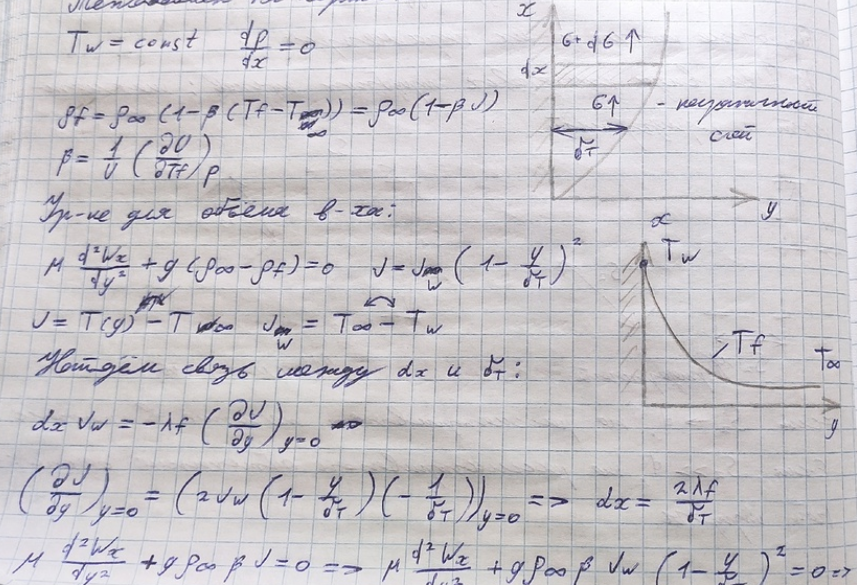 T_w = const dp/dx = 0
ρf = ρ∞ (1-β (Tf-T∞)) = ρ∞ (1-βϑ)
β = 1/υ (∂υ/∂Tf)_p
Ур-не для объёма в-ха:
μ d²Wx/dy² + g (ρ∞-ρf) = 0 ϑ = ϑ_w (1 - y/δт)²
ϑ = T(y) - T∞ ϑ_w = T∞ - T_w
Найдём связь между αx и δт:
αx ϑw = -λf (∂ϑ/∂y)_y=0
(∂ϑ/∂y)_y=0 = (2ϑw (1 - y/δт)(- 1/δт))_y=0 => αx = 2λf/δт
μ d²Wx/dy² + gρ∞βϑ = 0 => μ d²Wx/dy² + gρ∞β ϑw (1 - y/δт)² = 0 =>
x
G+dG ↑
dx
G↑
- пограничный
слой
δт
y
x
Tw
Tf
T∞
y